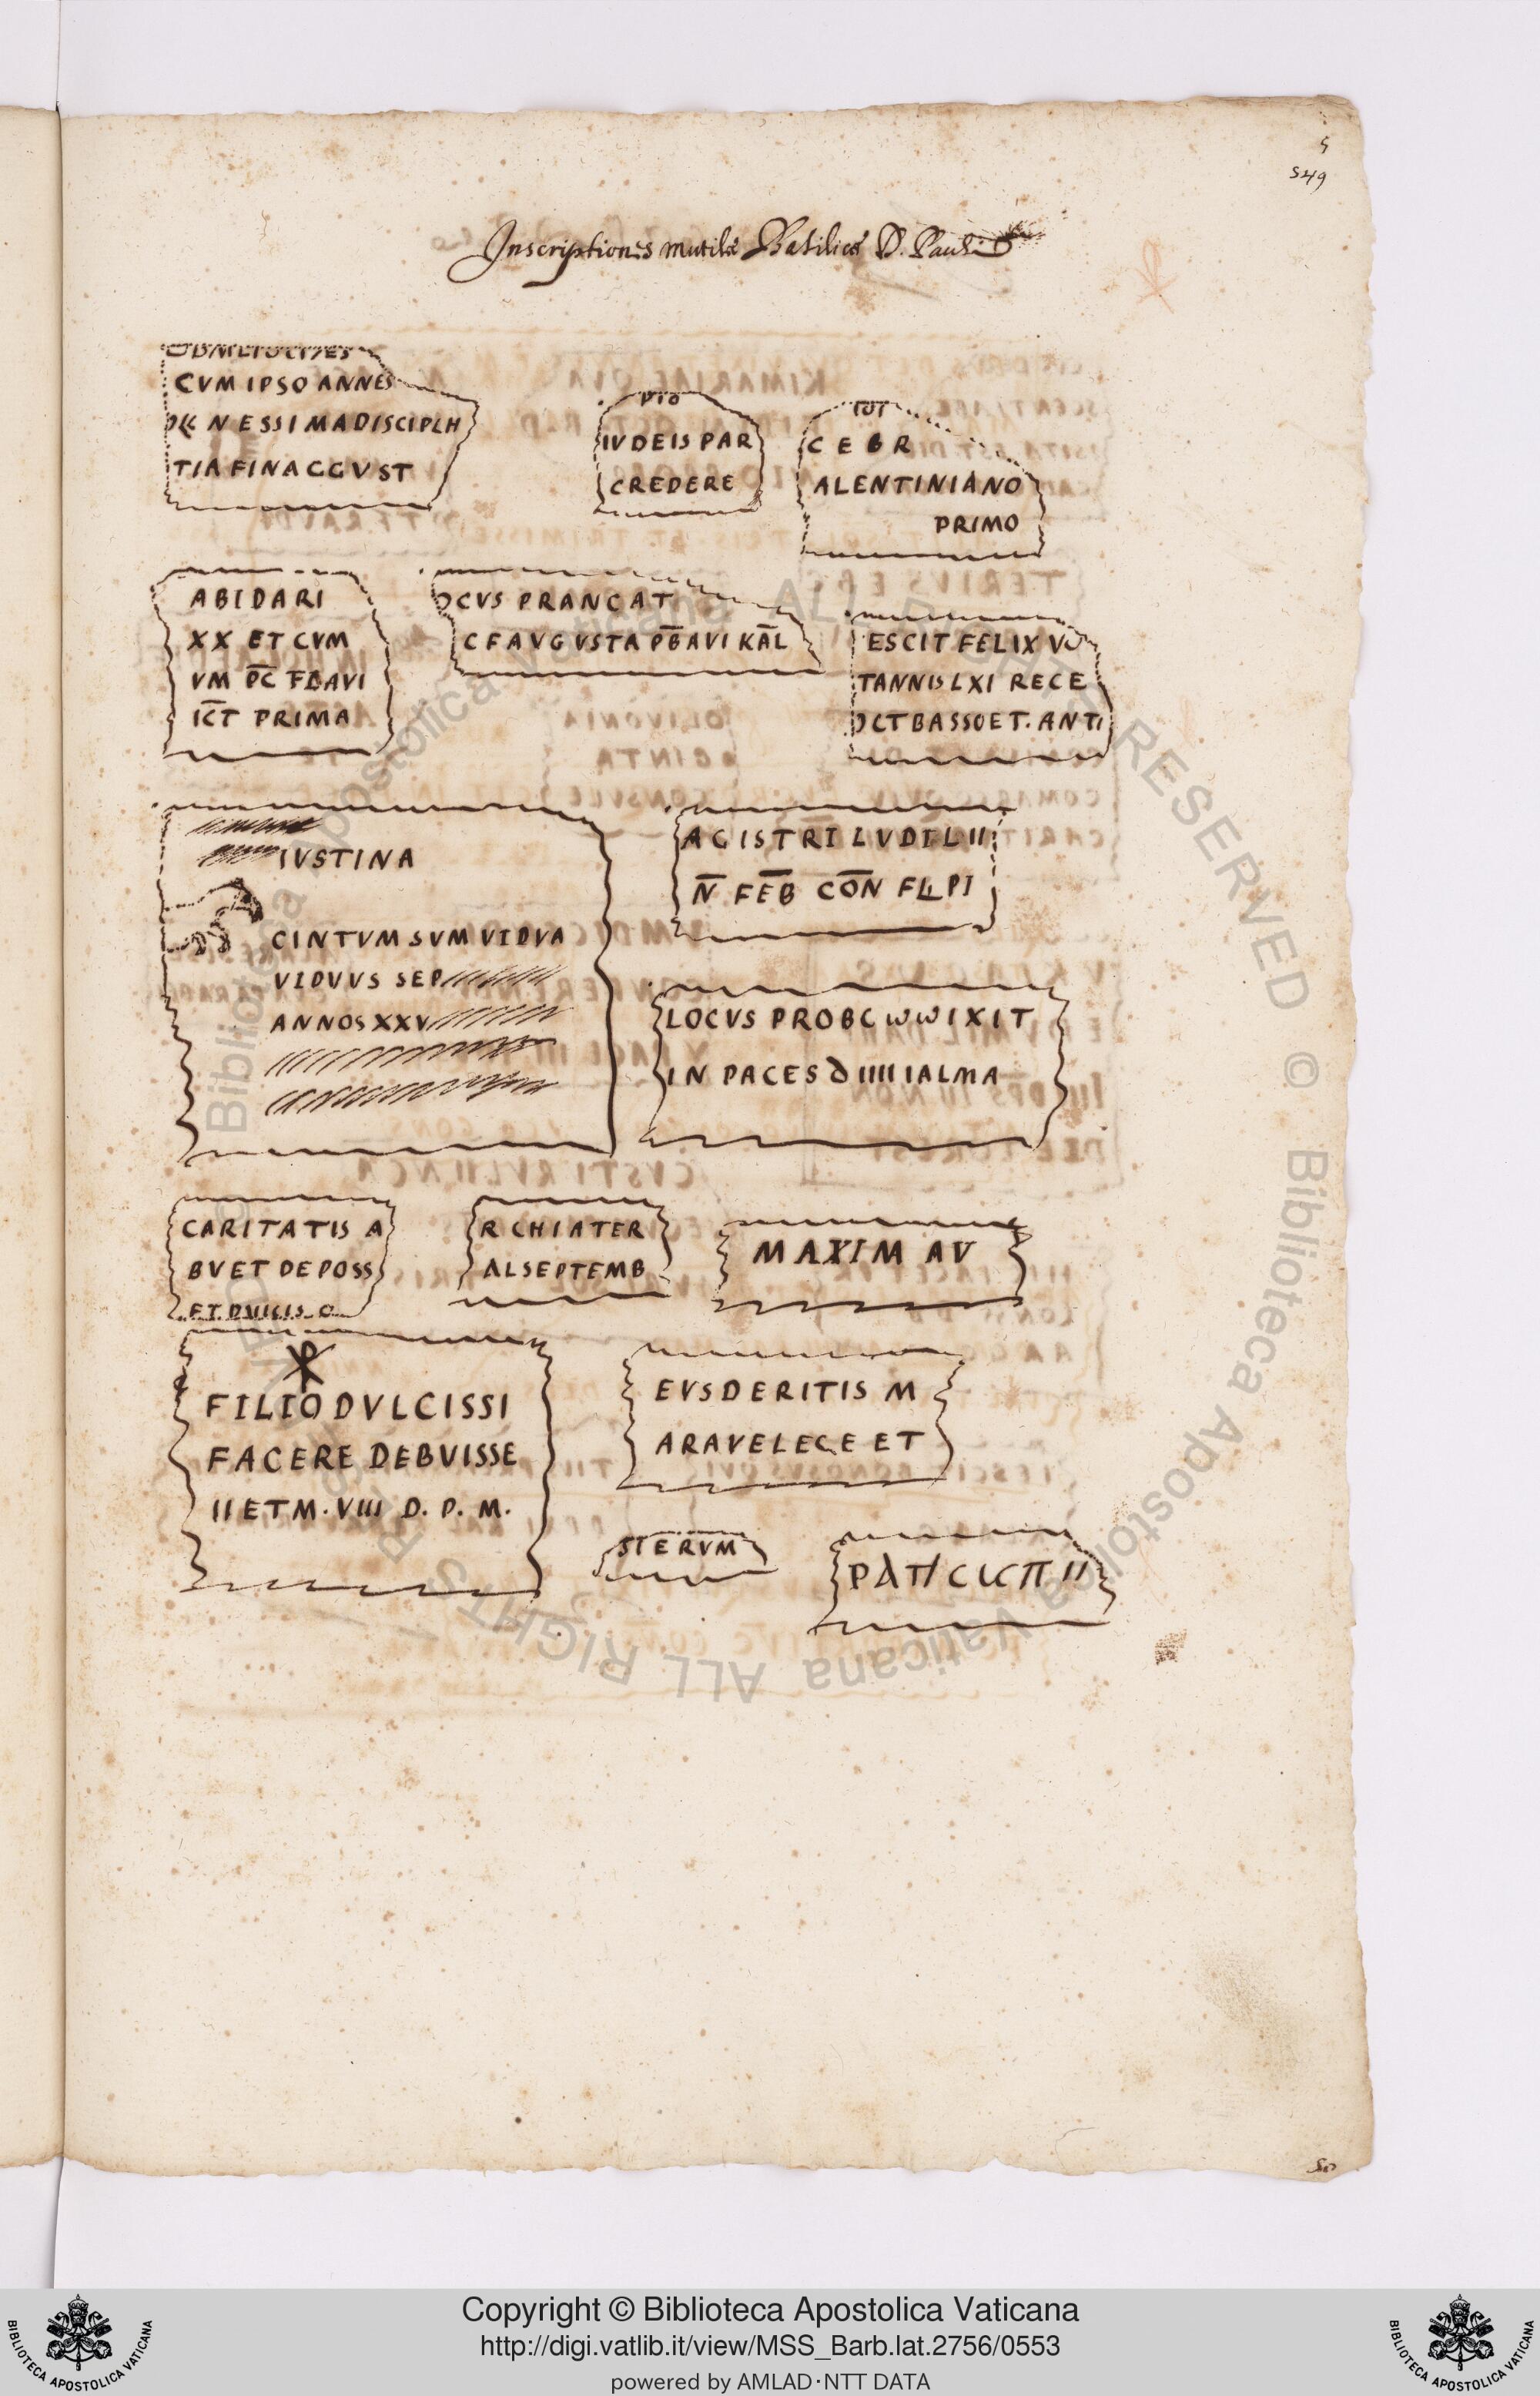 5
549
Inscriptiones mutilæ Basilicæ D. Pauli
CVM IPSO ANNES
NESSIMA DISCIPLH
TIA FINACGVST
PTO
IVDEIS PAR
CREDERE
TOT
C E B R
ALENTINIANO
PRIMO
ABIDARI
XX ET CVM
VM P̅C̅ FLAVI
IC̅T PRIMA
OCVS PRANCAT
CFAVGVSTA PB̅AVI KA̅L
ESCIT FELIX VO
TANNIS LXI RECE
OCT BASSO ET. ANTI
IVSTINA
CINTVM SVM VIDVA
VIDVVS SEP
ANNOS XXV
AGISTRI LVDI L II
N̅ FE̅B CO̅N FL PI
LOCVS PROBC ωωIXIT
IN PACES D IIII IALMA
CARITATIS A
BVET DEPOSS
ET DVLCIS O
RCHIATER
ALSEPTEMB
MAXIM AV
☧
FILIO DVLCISSI
FACERE DEBVISSE
II ET M. VIII D. P. M.
EVSDERITIS M
ARAVELEGE ET
STERVM
50
Copyright © Biblioteca Apostolica Vaticana
http://digi.vatlib.it/view/MSS_Barb.lat.2756/0553
powered by AMLAD·NTT DATA
BIBLIOTECA APOSTOLICA VATICANA
BIBLIOTECA APOSTOLICA VATICANA
© Biblioteca Apostolica Vaticana ALL RIGHTS RESERVED
© Biblioteca Apostolica Vaticana ALL RIGHTS RESERVED